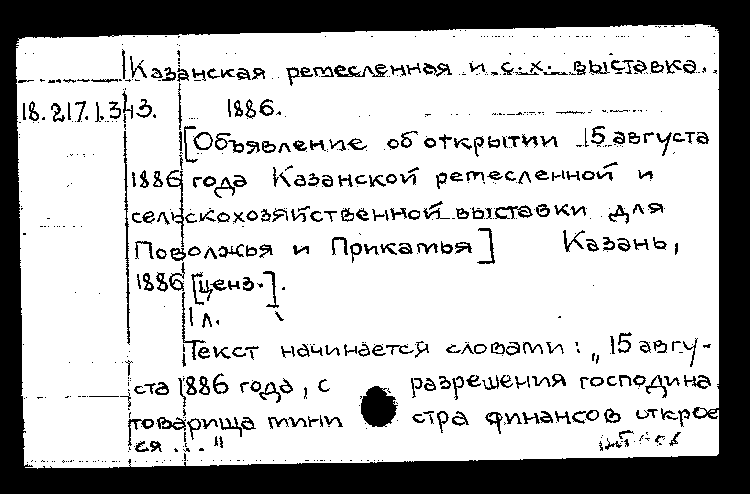 Казанская ремесленная и с.х. выставка.
18.217.1.343. 1886.
[Объявление об открытии 15 августа
1886 года Казанской ремесленной и
сельскохозяйственной выставки для
Поволжья и Прикамья] Казань,
1886 [ценз.].
1 л.
Текст начинается словами: „15 авгу-
ста 1886 года, с разрешения господина
товарища мини стра финансов открое
ся..."